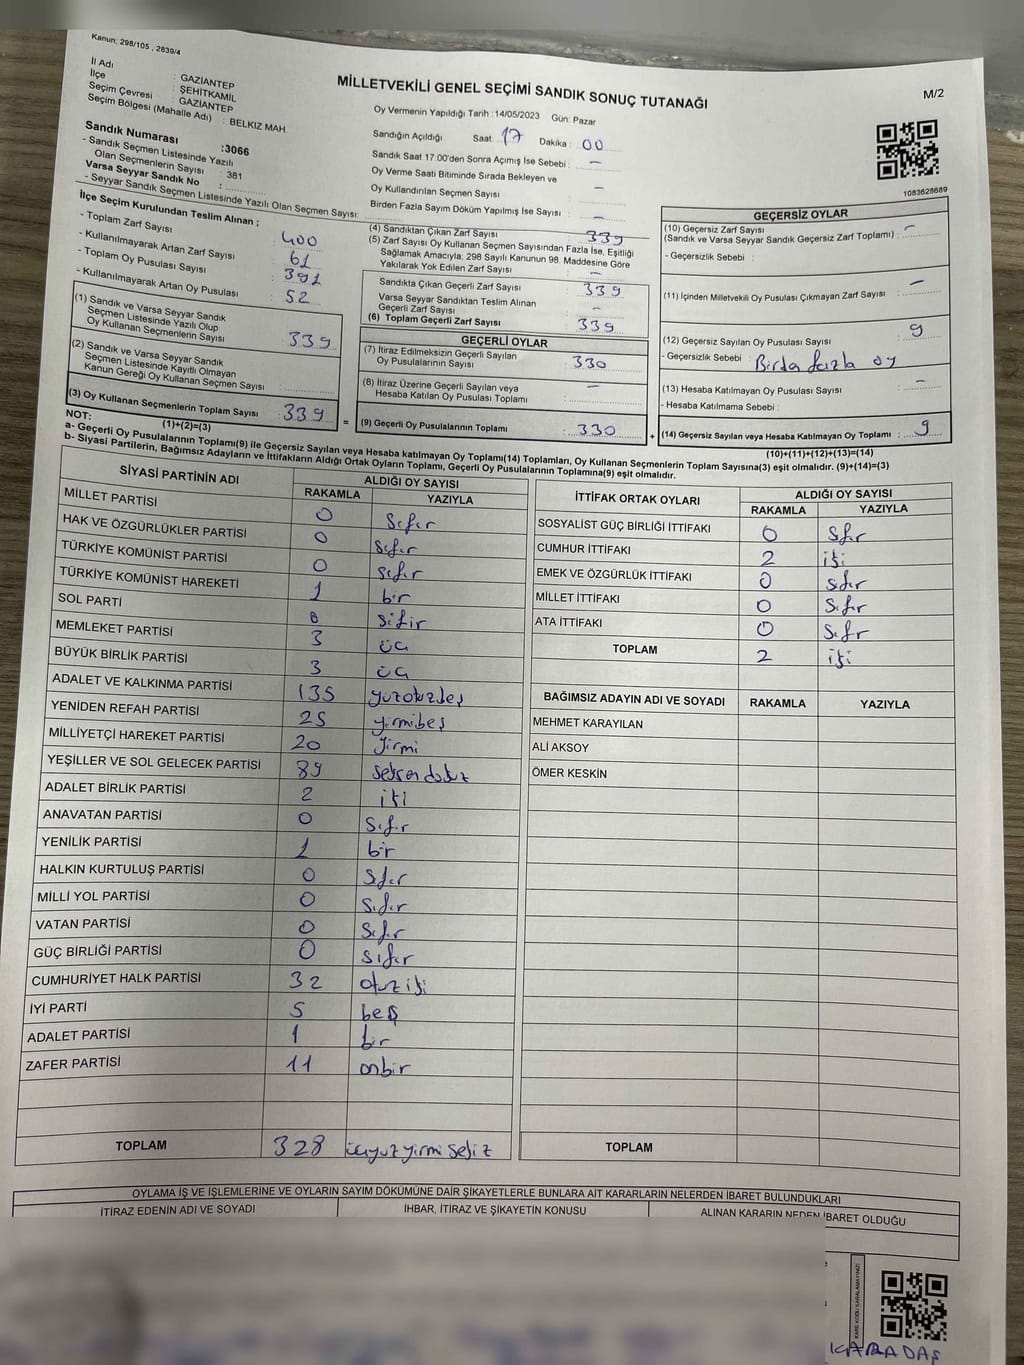 Kanun; 298/105 , 2839/4
MİLLETVEKİLİ GENEL SEÇİMİ SANDIK SONUÇ TUTANAĞI
M/2
İl Adı : GAZİANTEP
İlçe : ŞEHİTKAMİL
Seçim Çevresi : GAZİANTEP
Seçim Bölgesi (Mahalle Adı) : BELKIZ MAH.
Sandık Numarası :3066
- Sandık Seçmen Listesinde Yazılı
Olan Seçmenlerin Sayısı : 381
Varsa Seyyar Sandık No :
- Seyyar Sandık Seçmen Listesinde Yazılı Olan Seçmen Sayısı:
Oy Vermenin Yapıldığı Tarih :14/05/2023 Gün: Pazar
Sandığın Açıldığı Saat: 17 Dakika : 00
Sandık Saat 17:00'den Sonra Açımış İse Sebebi : –
Oy Verme Saati Bitiminde Sırada Bekleyen ve
Oy Kullandırılan Seçmen Sayısı –
Birden Fazla Sayım Döküm Yapılmış İse Sayısı : –
1083628689
İlçe Seçim Kurulundan Teslim Alınan ;
- Toplam Zarf Sayısı : 400
- Kullanılmayarak Artan Zarf Sayısı : 61
- Toplam Oy Pusulası Sayısı : 391
- Kullanılmayarak Artan Oy Pusulası : 52
(1) Sandık ve Varsa Seyyar Sandık
Seçmen Listesinde Yazılı Olup
Oy Kullanan Seçmenlerin Sayısı : 339
(2) Sandık ve Varsa Seyyar Sandık
Seçmen Listesinde Kayıtlı Olmayan
Kanun Gereği Oy Kullanan Seçmen Sayısı :
(3) Oy Kullanan Seçmenlerin Toplam Sayısı : 339 =
(1)+(2)=(3)
(4) Sandıktan Çıkan Zarf Sayısı : 339
(5) Zarf Sayısı Oy Kullanan Seçmen Sayısından Fazla İse, Eşitliği
Sağlamak Amacıyla, 298 Sayılı Kanunun 98. Maddesine Göre
Yakılarak Yok Edilen Zarf Sayısı : –
Sandıkta Çıkan Geçerli Zarf Sayısı : 339
Varsa Seyyar Sandıktan Teslim Alınan
Geçerli Zarf Sayısı : –
(6) Toplam Geçerli Zarf Sayısı : 339
GEÇERLİ OYLAR
(7) İtiraz Edilmeksizin Geçerli Sayılan
Oy Pusulalarının Sayısı : 330
(8) İtiraz Üzerine Geçerli Sayılan veya
Hesaba Katılan Oy Pusulası Toplamı : –
(9) Geçerli Oy Pusulalarının Toplamı : 330 +
GEÇERSİZ OYLAR
(10) Geçersiz Zarf Sayısı
(Sandık ve Varsa Seyyar Sandık Geçersiz Zarf Toplamı) : –
- Geçersizlik Sebebi :
(11) İçinden Milletvekili Oy Pusulası Çıkmayan Zarf Sayısı : –
(12) Geçersiz Sayılan Oy Pusulası Sayısı : 9
- Geçersizlik Sebebi : Birda fazla oy
(13) Hesaba Katılmayan Oy Pusulası Sayısı : –
- Hesaba Katılmama Sebebi :
(14) Geçersiz Sayılan veya Hesaba Katılmayan Oy Toplamı : 9
(10)+(11)+(12)+(13)=(14)
NOT:
a- Geçerli Oy Pusulalarının Toplamı(9) ile Geçersiz Sayılan veya Hesaba katılmayan Oy Toplamı(14) Toplamları, Oy Kullanan Seçmenlerin Toplam Sayısına(3) eşit olmalıdır. (9)+(14)=(3)
b- Siyasi Partilerin, Bağımsız Adayların ve İttifakların Aldığı Ortak Oyların Toplamı, Geçerli Oy Pusulalarının Toplamına(9) eşit olmalıdır.
SİYASİ PARTİNİN ADI ALDIĞI OY SAYISI
RAKAMLA YAZIYLA
MİLLET PARTİSİ 0 Sıfır
HAK VE ÖZGÜRLÜKLER PARTİSİ 0 Sıfır
TÜRKİYE KOMÜNİST PARTİSİ 0 Sıfır
TÜRKİYE KOMÜNİST HAREKETİ 1 bir
SOL PARTİ 0 Sıfır
MEMLEKET PARTİSİ 3 üç
BÜYÜK BİRLİK PARTİSİ 3 üç
ADALET VE KALKINMA PARTİSİ 135 yüzotuzbeş
YENİDEN REFAH PARTİSİ 25 yirmibeş
MİLLİYETÇİ HAREKET PARTİSİ 20 Yirmi
YEŞİLLER VE SOL GELECEK PARTİSİ 89 seksendokuz
ADALET BİRLİK PARTİSİ 2 iki
ANAVATAN PARTİSİ 0 Sıfır
YENİLİK PARTİSİ 1 bir
HALKIN KURTULUŞ PARTİSİ 0 Sıfır
MİLLİ YOL PARTİSİ 0 Sıfır
VATAN PARTİSİ 0 Sıfır
GÜÇ BİRLİĞİ PARTİSİ 0 Sıfır
CUMHURİYET HALK PARTİSİ 32 otuziki
İYİ PARTİ 5 beş
ADALET PARTİSİ 1 bir
ZAFER PARTİSİ 11 onbir
TOPLAM 328 üçyüzyirmisekiz
İTTİFAK ORTAK OYLARI ALDIĞI OY SAYISI
RAKAMLA YAZIYLA
SOSYALİST GÜÇ BİRLİĞİ İTTİFAKI 0 Sıfır
CUMHUR İTTİFAKI 2 iki
EMEK VE ÖZGÜRLÜK İTTİFAKI 0 Sıfır
MİLLET İTTİFAKI 0 Sıfır
ATA İTTİFAKI 0 Sıfır
TOPLAM 2 iki
BAĞIMSIZ ADAYIN ADI VE SOYADI RAKAMLA YAZIYLA
MEHMET KARAYILAN
ALİ AKSOY
ÖMER KESKİN
TOPLAM
OYLAMA İŞ VE İŞLEMLERİNE VE OYLARIN SAYIM DÖKÜMÜNE DAİR ŞİKAYETLERLE BUNLARA AİT KARARLARIN NELERDEN İBARET BULUNDUKLARI
İTİRAZ EDENİN ADI VE SOYADI İHBAR, İTİRAZ VE ŞİKAYETİN KONUSU ALINAN KARARIN NEDEN İBARET OLDUĞU
KARADAŞ